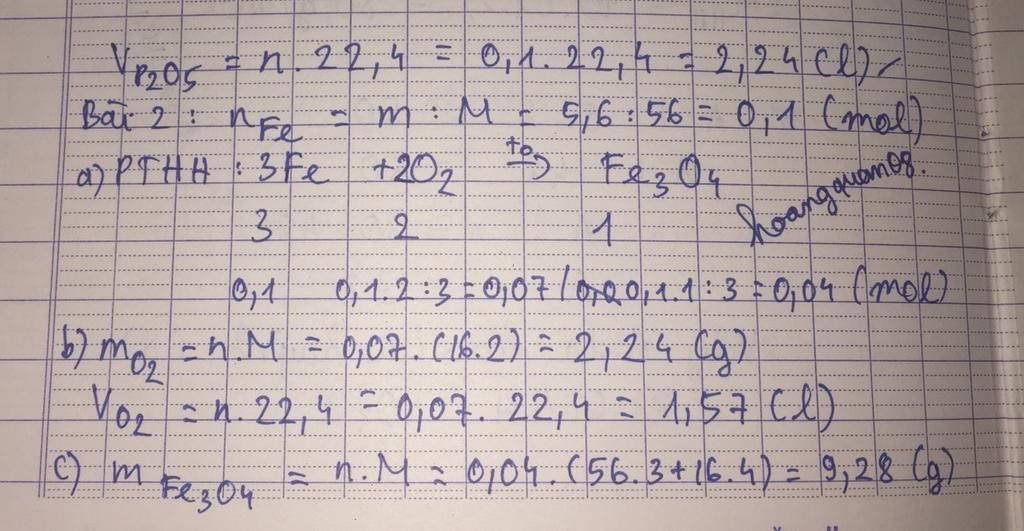 V P2O5 = n . 22,4 = 0,1 . 22,4 = 2,24 (l)
Bài 2 : nFe = m : M = 5,6 : 56 = 0,1 (mol)
a) PTHH : 3Fe + 2O2 t° → Fe3O4
hoangquan08.
3 2 1
0,1 0,1.2:3=0,07 / 0,1.1:3=0,04 (mol)
b) mO2 = n.M = 0,07.(16.2) = 2,24 (g)
VO2 = n.22,4 = 0,07. 22,4 = 1,57 (l)
c) m Fe3O4 = n.M = 0,04.(56.3+16.4) = 9,28 (g)